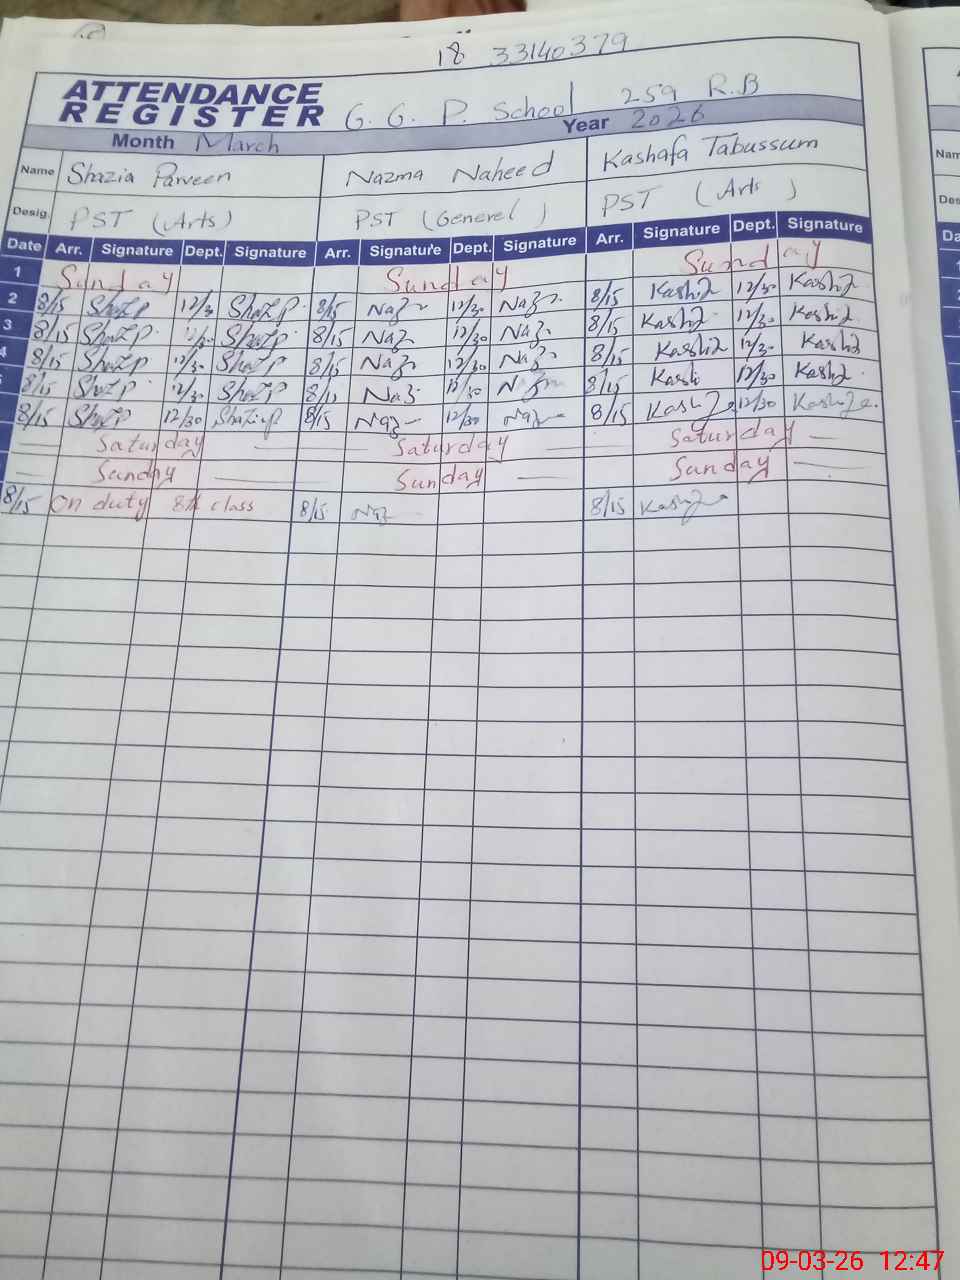 18 33140379
ATTENDANCE REGISTER G. G. P. School 259 R.B
Month March Year 2026
Name Shazia Parveen Nazma Naheed Kashafa Tabussum
Desig. PST (Arts) PST (Generel) PST (Arts)
Date Arr. Signature Dept. Signature Arr. Signature Dept. Signature Arr. Signature Dept. Signature
1 Sunday Sunday Sunday
2 8/15 12/30 8/15 Naz 12/30 Naz 8/15 12/30
3 8/15 8/15 Naz 12/30 Naz 8/15 12/30
4 8/15 12/30 8/15 Naz 12/30 Naz 8/15 12/30
8/15 12/30 Naz 12/30 8/15 Kashi 12/30
8/15 12/30 8/15 Naz 12/30 Naz 8/15 12/30
Saturday Saturday Saturday
Sunday Sunday Sunday
8/15 On duty 8th class 8/15 Naz 8/15
09-03-26 12:47